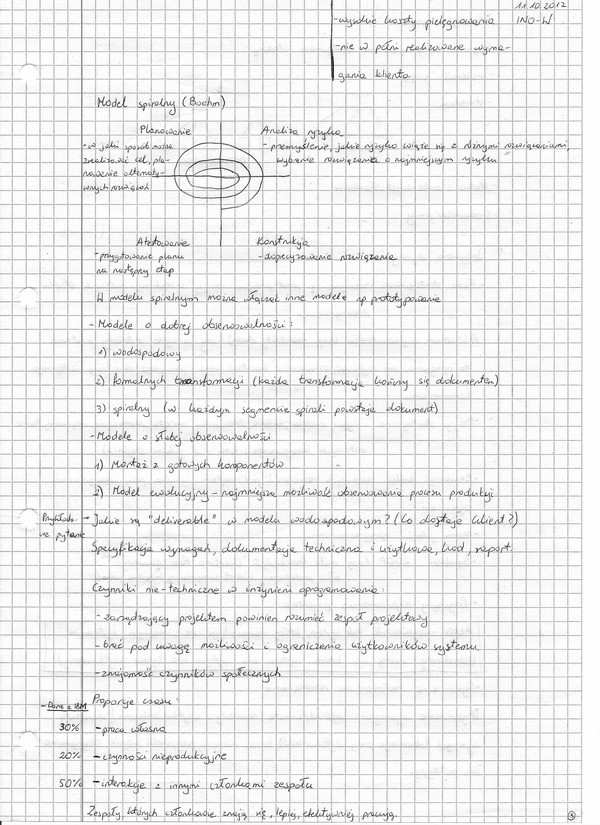 11.10.2012
INO-W
-wysokie koszty pielęgnowania
-nie w pełni realizowane wyma-
gania klienta
Model spiralny (Boehm)
Planowanie
-w jaki sposób można
zrealizować cel, pla-
nowanie alternaty-
wnych rozwiązań
Analiza ryzyka
-przemyślenie, jakie ryzyko wiąże się z różnymi rozwiązaniami,
wybranie rozwiązania o najmniejszym ryzyku
Atestowanie
-przygotowanie planu
na następny etap
Konstrukcja
-dopracowanie rozwiązania
W modelu spiralnym można włączać inne modele np prototypowanie
-Modele o dobrej obserwowalności:
1) wodospadowy
2) formalnych transformacji (każda transformacja kończy się dokumentem)
3) spiralny (w każdym segmencie spirali powstaje dokument)
-Modele o słabej obserwowalności
1) Montaż z gotowych komponentów
2) Model ewolucyjny - najmniejsza możliwość obserwowania procesu produkcji
Przykłado-
we pytanie
-Jakie są "deliverable" w modelu wodospadowym? (Co dostaje klient?)
Specyfikacja wymagań, dokumentacja techniczna i użytkowa, kod, raport.
Czynniki nie-techniczne w inżynierii oprogramowania:
-zarządzający projektem powinien rozumieć zespół projektowy
-brać pod uwagę możliwości i ograniczenia użytkowników systemu
-znajomość czynników społecznych
-Dane z IBM
Proporcje czasu:
30% -praca własna
20% -czynności nieprodukcyjne
50% -interakcje z innymi członkami zespołu
Zespoły, których członkowie znają się, lepiej, efektywniej pracują.